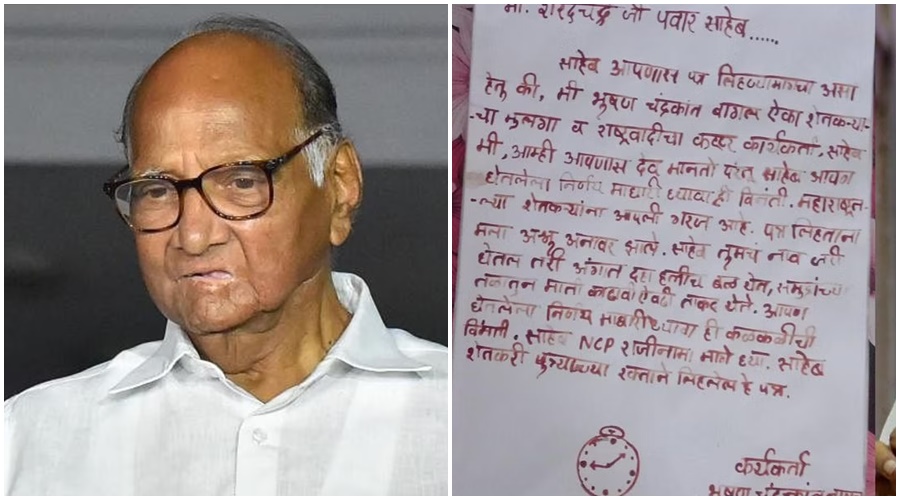 मा. शरदचंद्र जी पवार साहेब......
साहेब आपणास पत्र लिहण्यामागचा असा
हेतु की, मी भुषण चंद्रकांत बागल ऐका शेतकऱ्या-
-चा मुलगा व राष्ट्रवादीचा कट्टर कार्यकर्ता, साहेब
मी, आम्ही आपणास देव मानतो परंतु साहेब आपण
घेतलेला निर्णय माघारी घ्यावा ही विनंती. महाराष्ट्रात-
-ल्या शेतकऱ्यांना आपली गरज आहे. पत्र लिहताना
मला अश्रु अनावर झाले. साहेब तुमचं नाव जरी
घेतल तरी अंगात दहा हत्तीच बळ येत, समुद्राच्या
तळातुन माती काढावी ऐवढी ताकद येते. आपण
घेतलेला निर्णय माघारी घ्यावा ही कळकळीची
विनंती. साहेब NCP राजीनामा मागे घ्या. साहेब
शेतकरी पुत्र्याच्या रक्ताने लिहलेल हे पत्र.
कार्यकर्ता
भुषण चंद्रकांत बागल